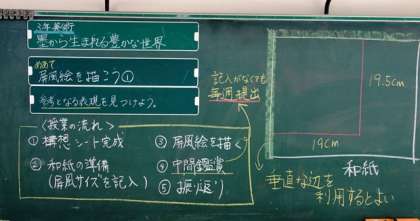 3年美術
墨から生まれる豊かな世界
めあて
屏風絵を描こう①
参考となる表現を見つけよう。
<授業の流れ>
① 構想シート完成
② 和紙の準備
(屏風サイズを記入)
③ 屏風絵を描く
④ 中間鑑賞
⑤ 振り返り
記入がなくても
毎週提出
19.5cm
19cm
和紙
垂直な辺を
利用するとよい